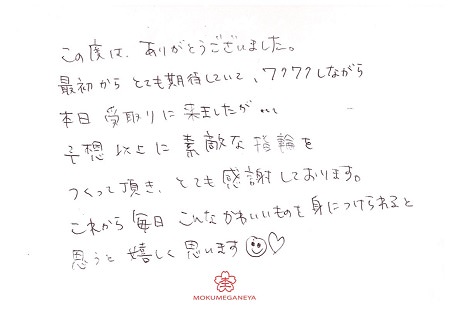 この度は、ありがとうございました。
最初から とても期待していて、ワクワクしながら
本日 受取りに来ましたが…
予想以上に 素敵な指輪を
つくって頂き、とても感謝しております。
これから毎日 こんなかわいいものを身につけられると
思うと 嬉しく思います
MOKUMEGANEYA